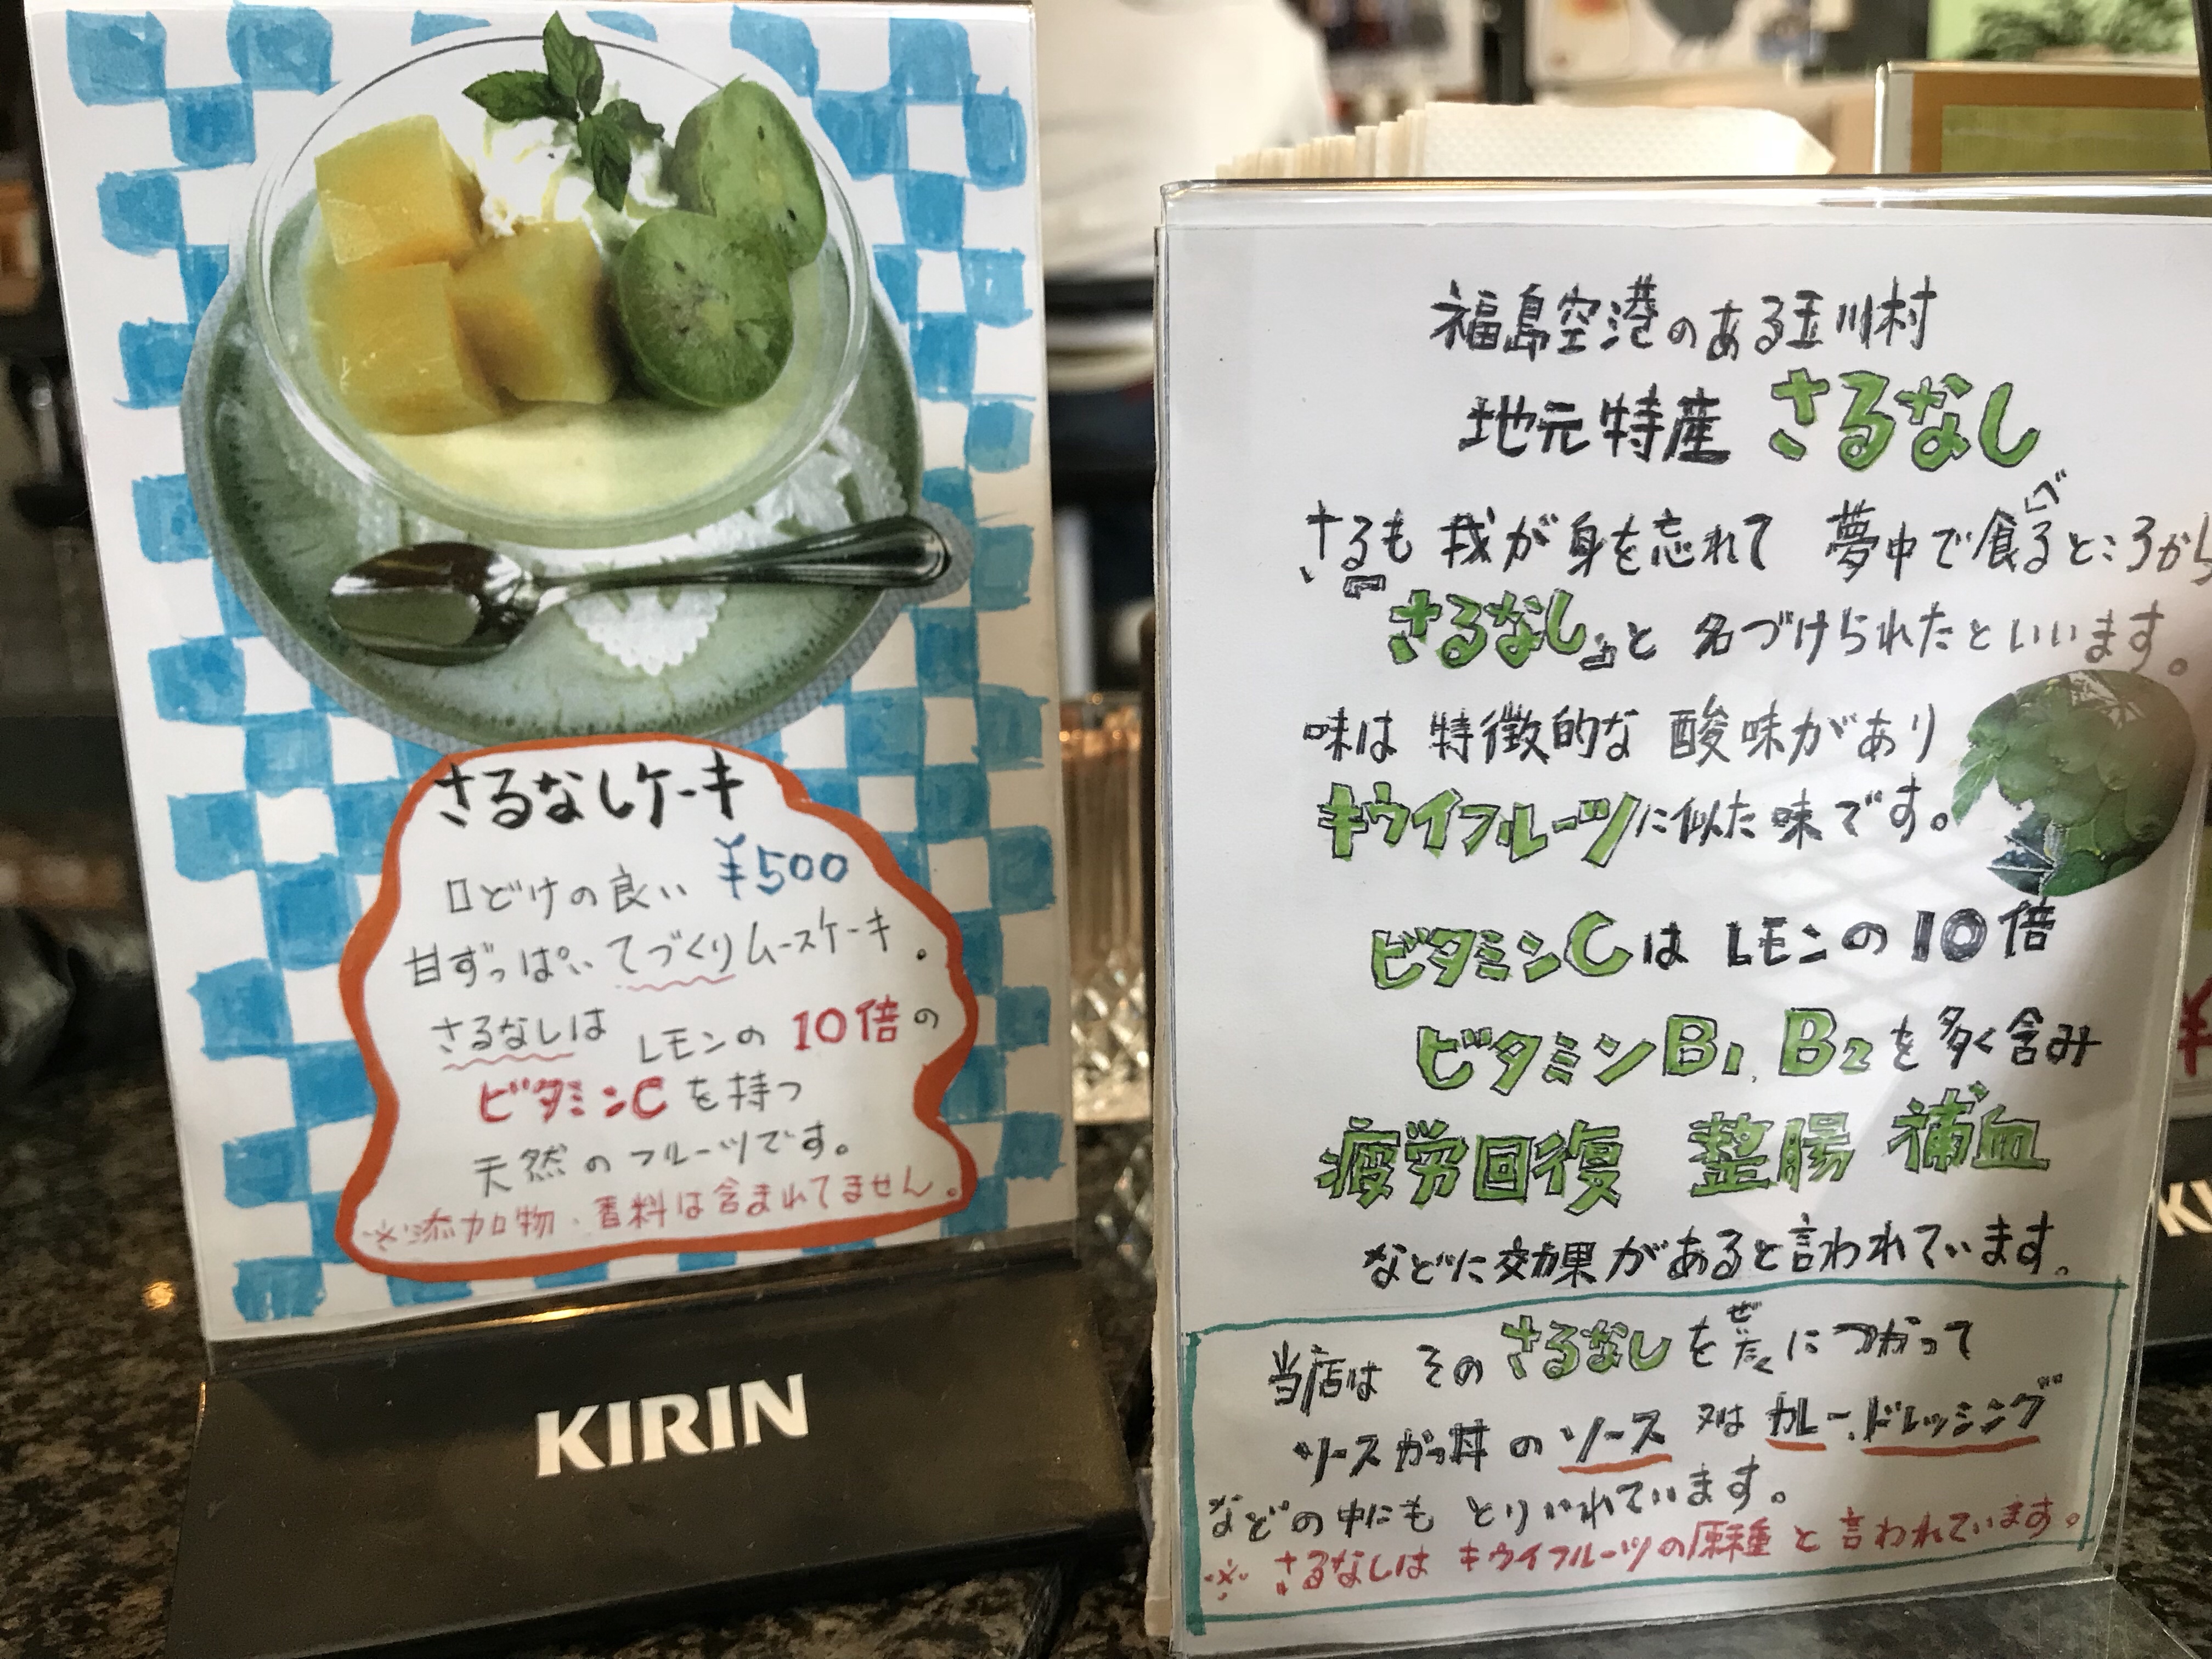 さるなしケーキ
¥500
口どけの良い
甘ずっぱいてづくりムースケーキ。
さるなしはレモンの10倍の
ビタミンCを持つ
天然のフルーツです。
※添加物、香料は含まれてません。
KIRIN
福島空港のある玉川村
地元特産 さるなし
さるも 我が身を忘れて 夢中で食べるところから
『さるなし』と 名づけられたといいます。
味は 特徴的な 酸味があり
キウイフルーツに似た味です。
ビタミンCは レモンの10倍
ビタミンB1、B2を多く含み
疲労回復 整腸 補血
などに効果があると言われています。
当店は そのさるなしを ぜいたくにつかって
ソースかつ丼のソース 又はカレー、ドレッシング
などの中にも とりいれています。
※ さるなしは キウイフルーツの原種と言われています。
¥
KI